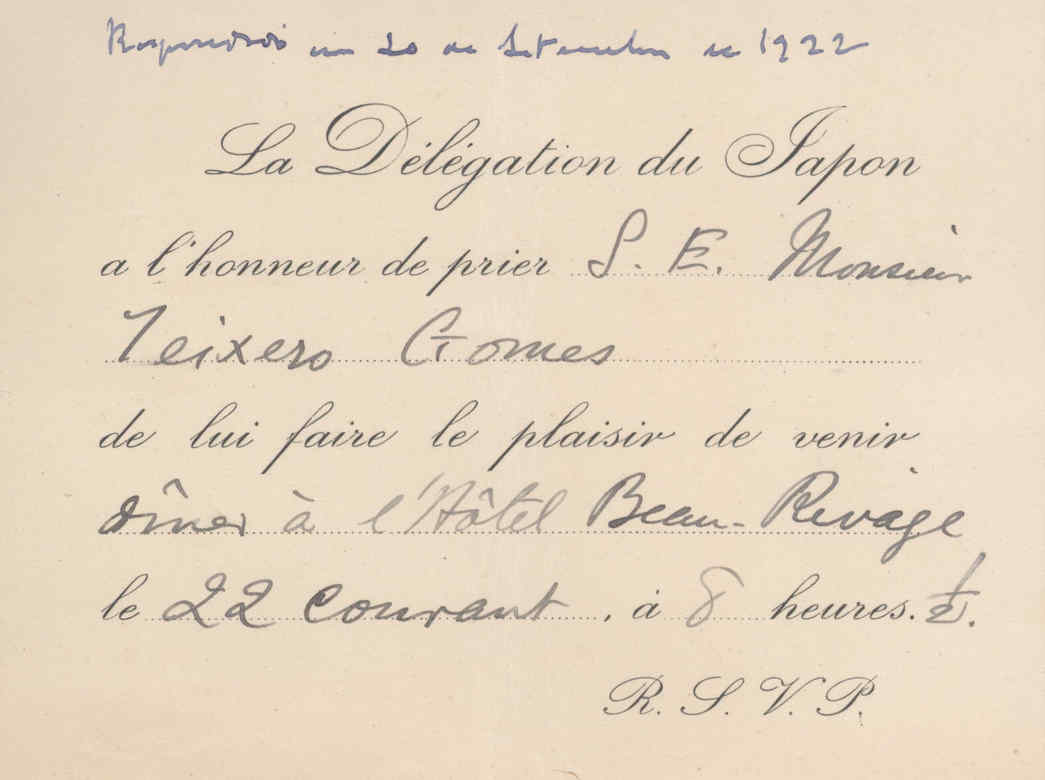 Respondido em 20 de Setembro de 1922
La Délégation du Japon
a l'honneur de prier S. E. Monsieur
Teixero Gomes
de lui faire le plaisir de venir
dîner à l'Hôtel Beau-Rivage
le 22 courant, à 8 heures. 1/2.
R. S. V. P.